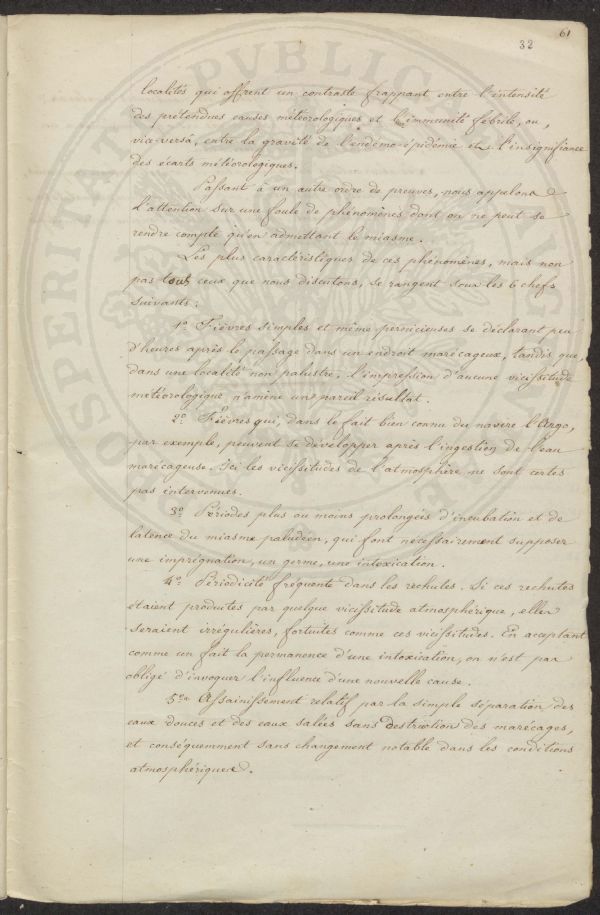 61
32
localités qui offrent un contraste frappant entre l'intensité
des prétendues causes météorologiques et l'immunité fébrile, ou,
vice-versâ, entre la gravité de l'endémo-épidémie et l'insignifiance
des écarts météorologiques.
Passant à un autre ordre de preuves, nous appelons
l'attention sur une foule de phénomènes dont on ne peut se
rendre compte qu'en admettant le miasme.
Les plus caractéristiques de ces phénomènes, mais non
pas tous ceux que nous discutons, se rangent sous les 6 chefs
suivants:
1º Fièvres simples et même pernicieuses se déclarant peu
d'heures après le passage dans un endroit marécageux, tandis que,
dans une localité non palustre, l'impression d'aucune vicissitude
météorologique n'amène un pareil résultat.
2º Fièvres qui, dans le fait bien connu du navire l'Argo,
par exemple, peuvent se développer après l'ingestion de l'eau
marécageuse. Ici les vicissitudes de l'atmosphère ne sont certes
pas intervenues.
3º Périodes plus ou moins prolongées d'incubation et de
latence du miasme paludéen, qui font nécessairement supposer
une imprégnation, un germe, une intoxication.
4º Périodicité fréquente dans les rechutes. Si ces rechutes
étaient produites par quelque vicissitude atmosphérique, elles
seraient irrégulières, fortuites comme ces vicissitudes. En acceptant
comme un fait la permanence d'une intoxication, on n'est pas
obligé d'invoquer l'influence d'une nouvelle cause.
5º Assainissement relatif par la simple séparation des
eaux douces et des eaux salées sans destruction des marécages,
et conséquemment sans changement notable dans les conditions
atmosphériques.